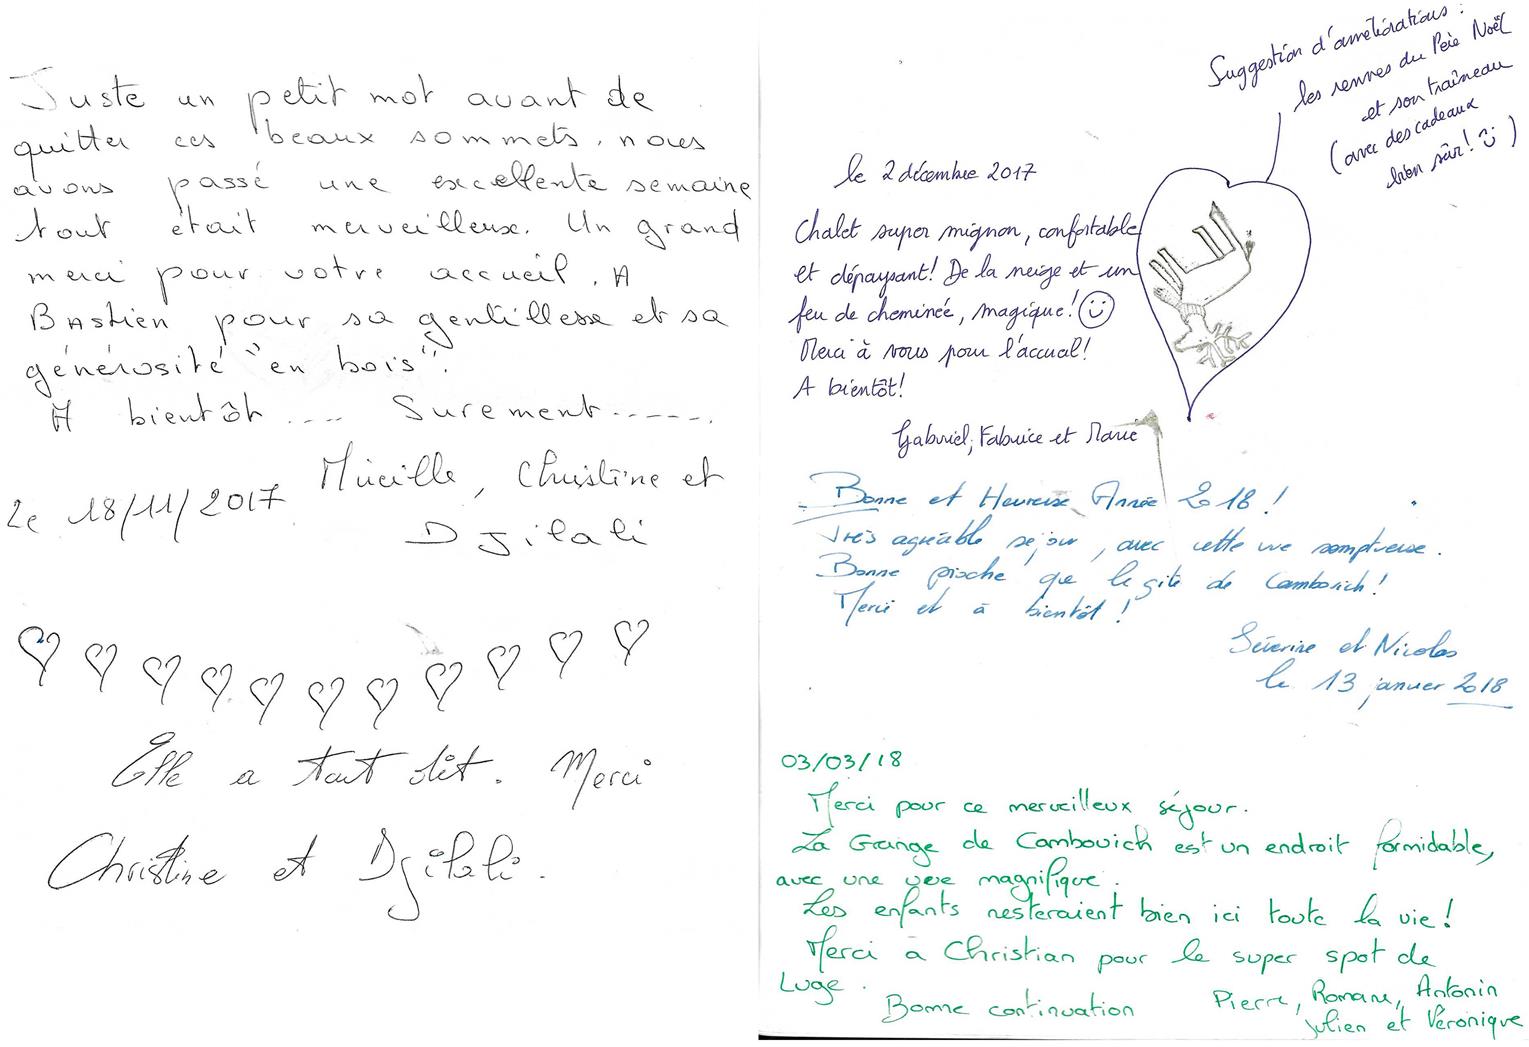 Juste un petit mot avant de
quitter ces beaux sommets. nous
avons passé une excellente semaine
tout était merveilleux. Un grand
merci pour votre accueil. A
Bastien pour sa gentillesse et sa
générosité "en bois".
A bientôt .... Surement ------.
Mireille, Christine et
Le 18/11/2017
Djilali
Elle a tout dit. Merci
Christine et Djilali.
Suggestion d'améliorations :
les rennes du Père Noël
et son traîneau
(avec des cadeaux
bien sûr! )
le 2 décembre 2017
Chalet super mignon, confortable
et dépaysant! De la neige et un
feu de cheminée, magique!
Merci à vous pour l'accueil!
A bientôt!
Gabriel, Fabrice et Marie
Bonne et Heureuse Année 2018 !
Très agréable séjour, avec cette vue somptueuse.
Bonne pioche que le gîte de Cambovich!
Merci et à bientôt !
Séverine et Nicolas
le 13 janvier 2018
03/03/18
Merci pour ce merveilleux séjour.
La Grange de Cambovich est un endroit formidable,
avec une vue magnifique.
Les enfants resteraient bien ici toute la vie!
Merci à Christian pour le super spot de
Luge.
Bonne continuation
Pierre, Romane, Antonin
Julien et Véronique